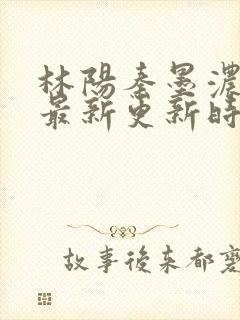 林陽秦墨濃
最新更新時
故事後來都寫